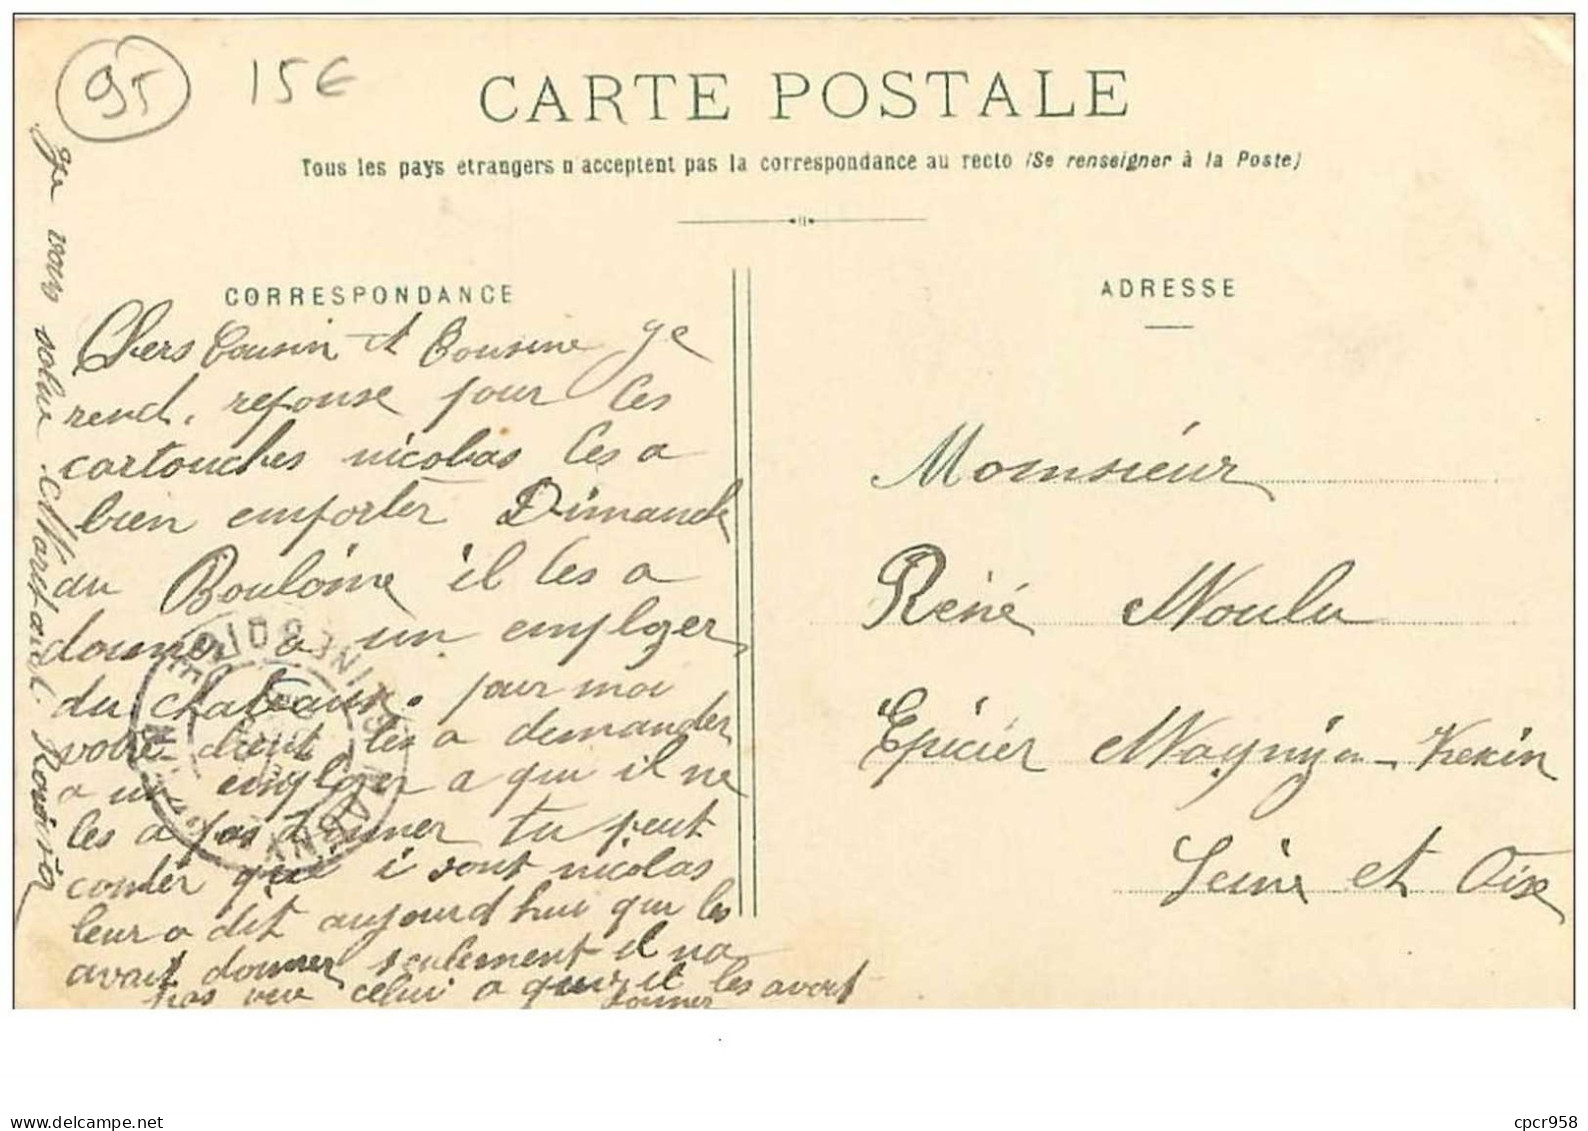 95 15€
CARTE POSTALE
Tous les pays etrangers n'acceptent pas la correspondance au recto (Se renseigner à la Poste)
CORRESPONDANCE
Chers Cousin et Cousine ge
rend. reponse pour les
cartouches nicolas les a
bien emporter Dimanche
au Bouloine il les a
donner a un employer
du chateaux. pour moi
votre dient les a demander
a un employer a qui il ne
les a pas donner tu peut
conter qui i sont nicolas
leur a dit aujourd hui que les
avait donner seulement il na
pas vue celui a qui il les avait
donner
ge vous salue
ADRESSE
Monsieur
René Moulu
Epicier Magny en Vexin
Seine et Oise
cpcr958